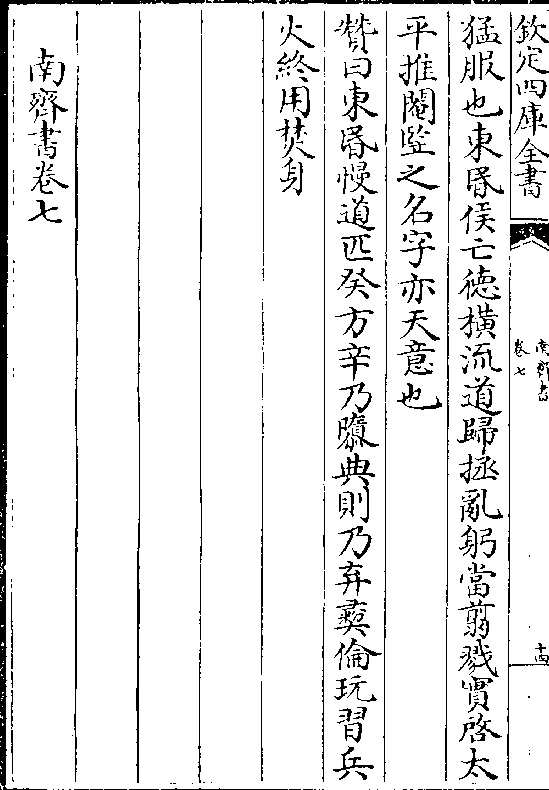 欽定四庫全書
南齊書
卷七
十四
猛服也東昏侯亡德横流道歸拯亂躬當翦戮實啓太
平推閹䜿之名字亦天意也
贊曰東昏慢道匹癸方辛乃隳典則乃弃彛倫玩習兵
火終用焚身
南齊書卷七